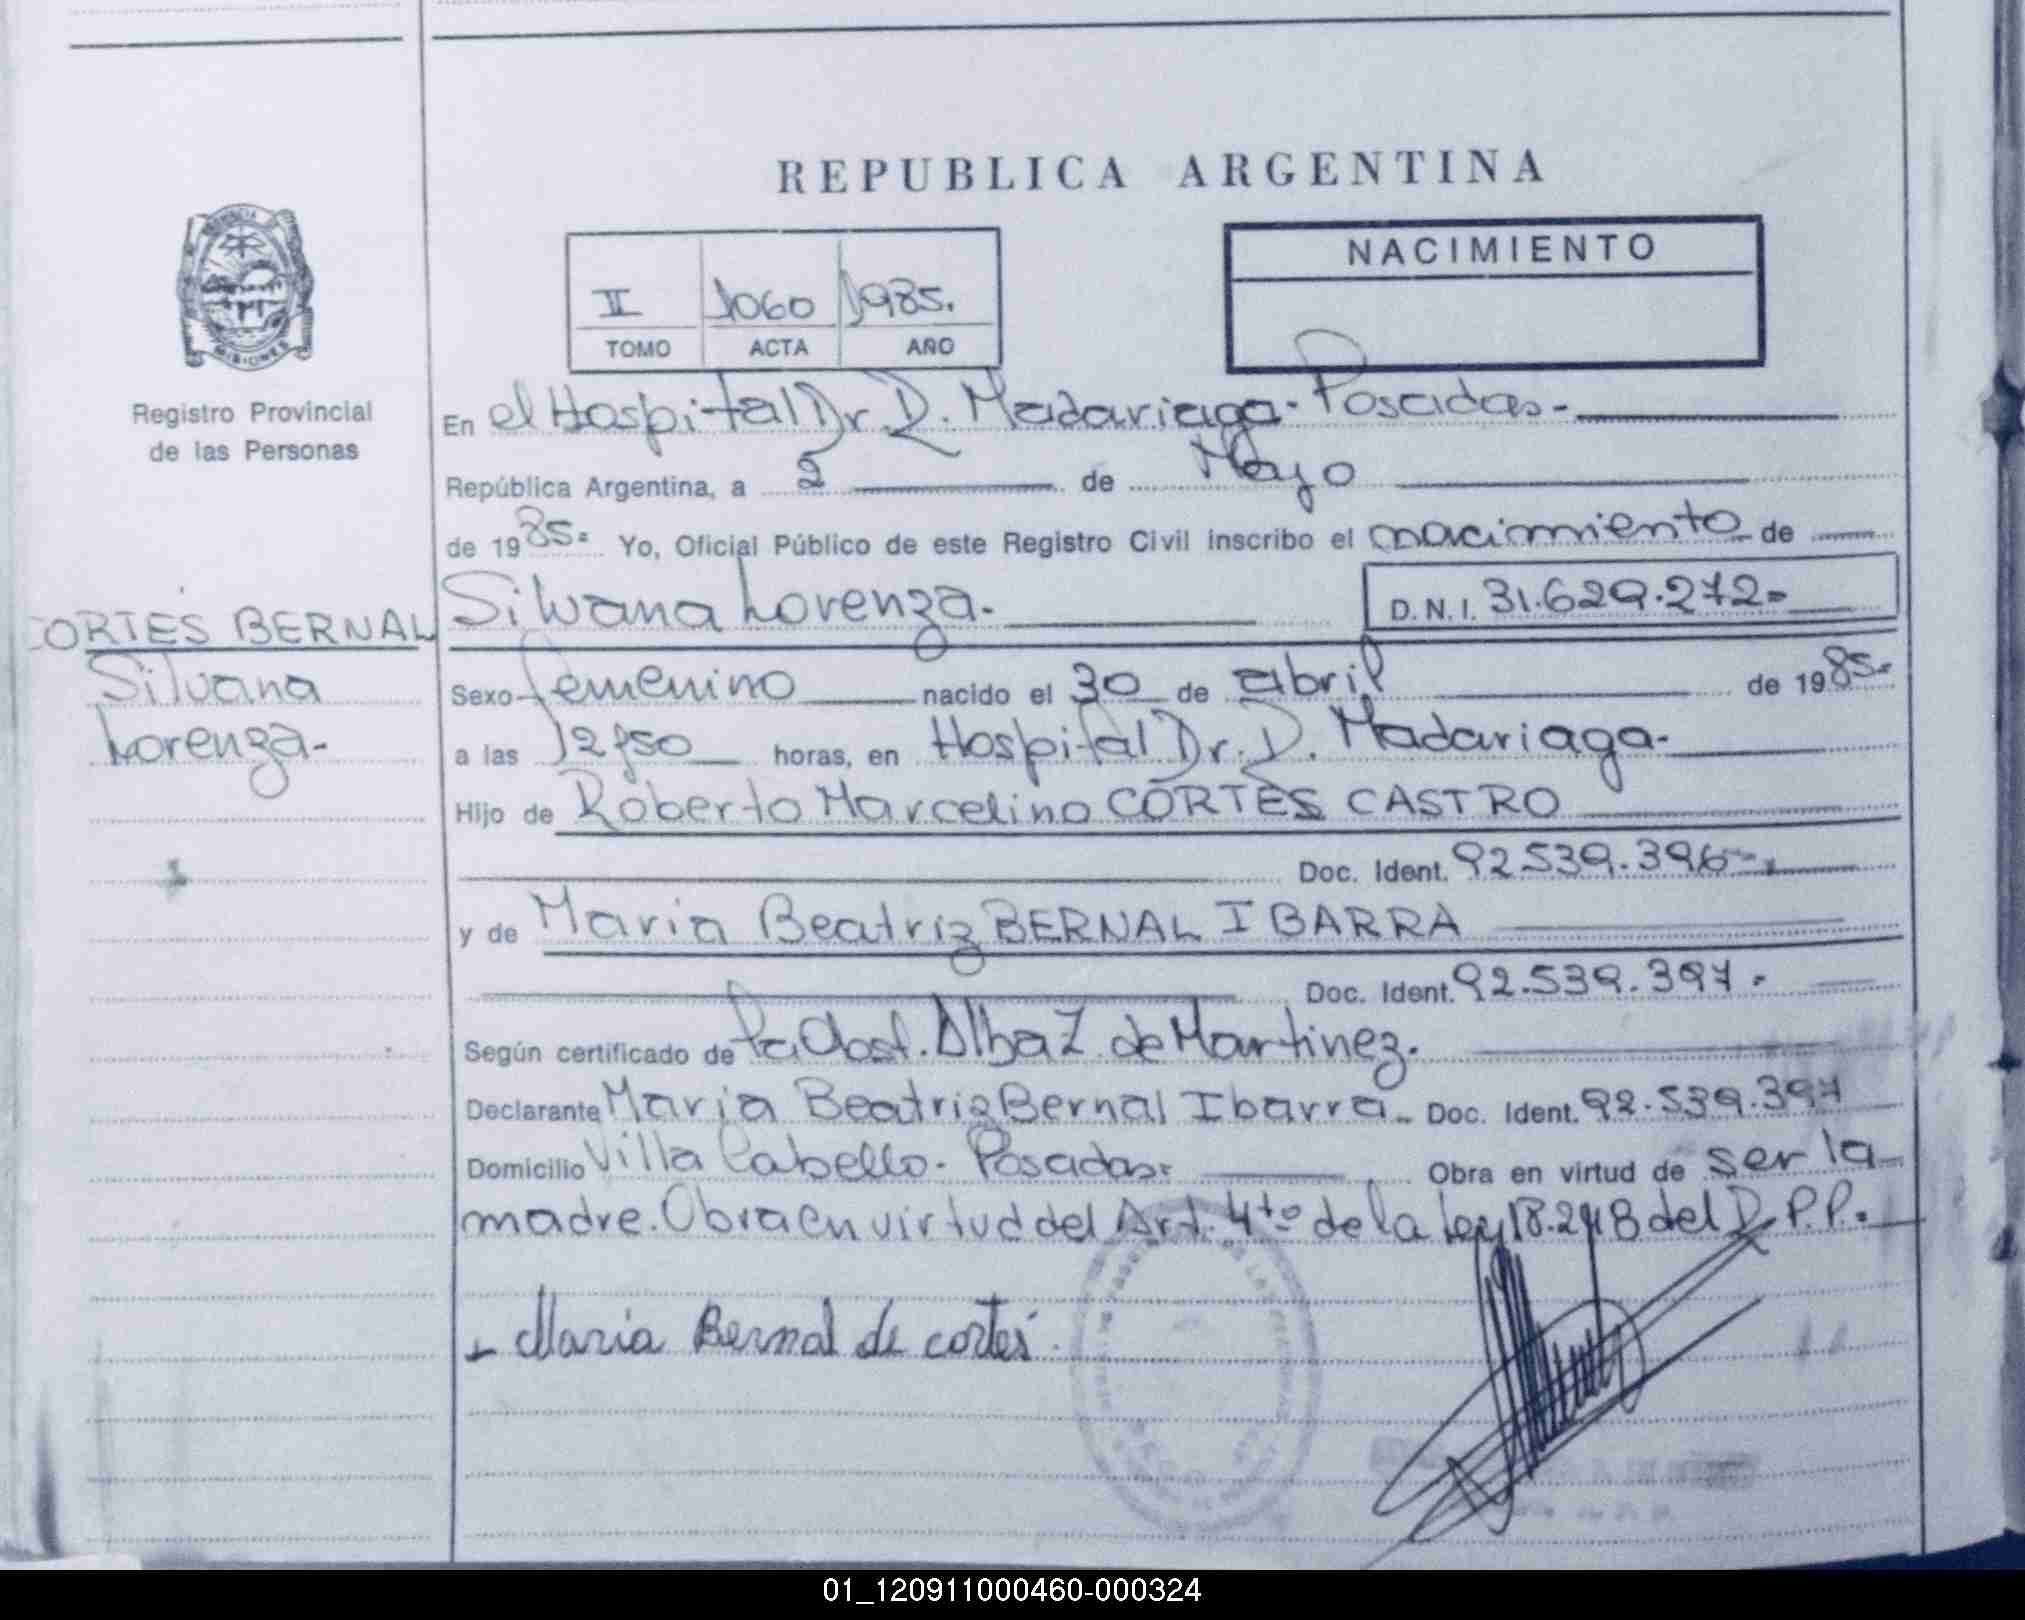 REPUBLICA ARGENTINA
NACIMIENTO
II 1060 1985.
TOMO ACTA AÑO
MISIONES
Registro Provincial
de las Personas
En el Hospital Dr. R. Madariaga- Posadas-
República Argentina, a 2 de Mayo
de 1985- Yo, Oficial Público de este Registro Civil inscribo el nacimiento de
CORTES BERNAL
Silvana
Lorenza-
Silvana Lorenza. D.N.I. 31.629.272-
Sexo femenino nacido el 30 de abril de 1985-
a las 12,50 horas, en Hospital Dr. R. Madariaga-
Hijo de Roberto Marcelino CORTES CASTRO
Doc. Ident. 92.539.396-
y de Maria Beatriz BERNAL IBARRA
Doc. Ident. 92.539.397-
Según certificado de la Obst. Alba Z. de Martinez.
Declarante Maria Beatriz Bernal Ibarra- Doc. Ident. 92.539.397
Domicilio Villa Cabello- Posadas- Obra en virtud de ser la
madre. Obra en virtud del Art. 4to de la Ley 18.248 del D.P.P.
Maria Bernal de cortes
01_120911000460-000324